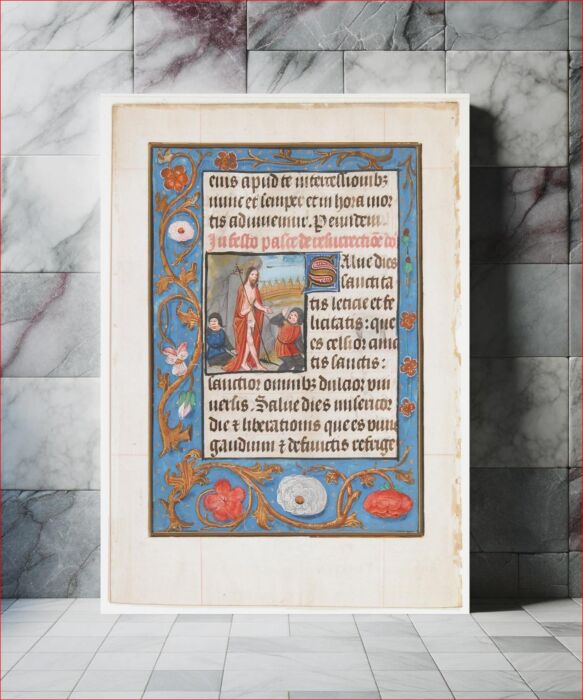 eius apud te intercessionibꝫ
nunc et semper et in hora mor
tis ad uiuemur. P eunde
In festo pasce de resurrectiōe
Salue dies
sancti ta
tis leticie et fe
licitatis: que
es celsior ami
tis sanctis:
sanctior omnibꝫ dulcior uni
uersis. Salue dies misericor
die ⁊ liberationis que es uiuis
gaudium ⁊ defunctis refuge